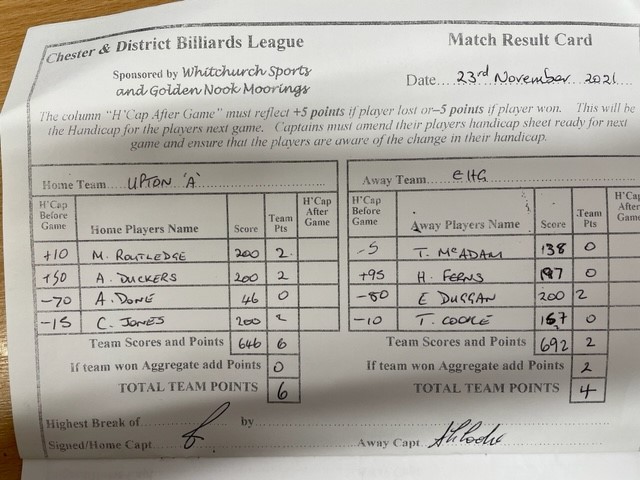 Chester & District Billiards League
Match Result Card
Sponsored by Whitchurch Sports
and Golden Nook Moorings
Date 23rd November 2021
The column "H'Cap After Game" must reflect +5 points if player lost or –5 points if player won. This will be
the Handicap for the players next game. Captains must amend their players handicap sheet ready for next
game and ensure that the players are aware of the change in their handicap.
Home Team UPTON 'A'
H'Cap Before Game Home Players Name Score Team Pts H'Cap After Game
+10 M. ROUTLEDGE 200 2
+50 A. DUCKERS 200 2
-70 A. DONE 46 0
-15 C. JONES 200 2
Team Scores and Points 646 6
If team won Aggregate add Points 0
TOTAL TEAM POINTS 6
Away Team EHG
H'Cap Before Game Away Players Name Score Team Pts H'Cap After Game
-5 T. McADAM 138 0
+95 H. FERNS 197 0
-80 E DUGGAN 200 2
-10 T. COOKE 157 0
Team Scores and Points 692 2
If team won Aggregate add Points 2
TOTAL TEAM POINTS 4
Highest Break of by
Signed/Home Capt
Away Capt